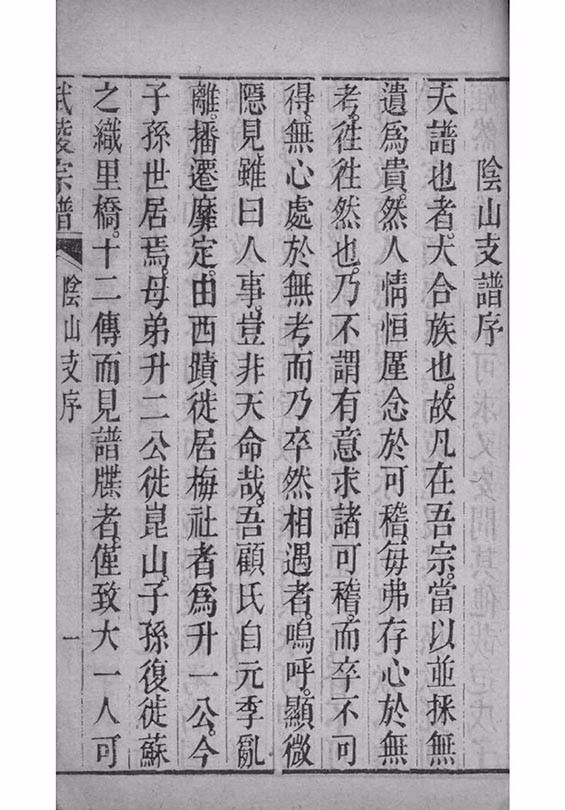 陰山支譜序
夫譜也者。大合族也。故凡在吾宗。當以並採無
遺爲貴。然人情恒厪念於可稽。每弗存心於無
考。徃徃然也。乃不謂有意求諸可稽。而卒不可
得。無心處於無考而乃卒然相遇者。嗚呼。顯微
隱見。雖曰人事。豈非天命哉。吾顧氏自元季亂
離。播遷靡定。由西蹟徙居梅社者爲升一公。今
子孫世居焉。母弟升二公徙崑山。子孫復徙蘇
之織里橋。十二傳而見譜牒者。僅致大一人可
武陵宗譜
陰山支序
一